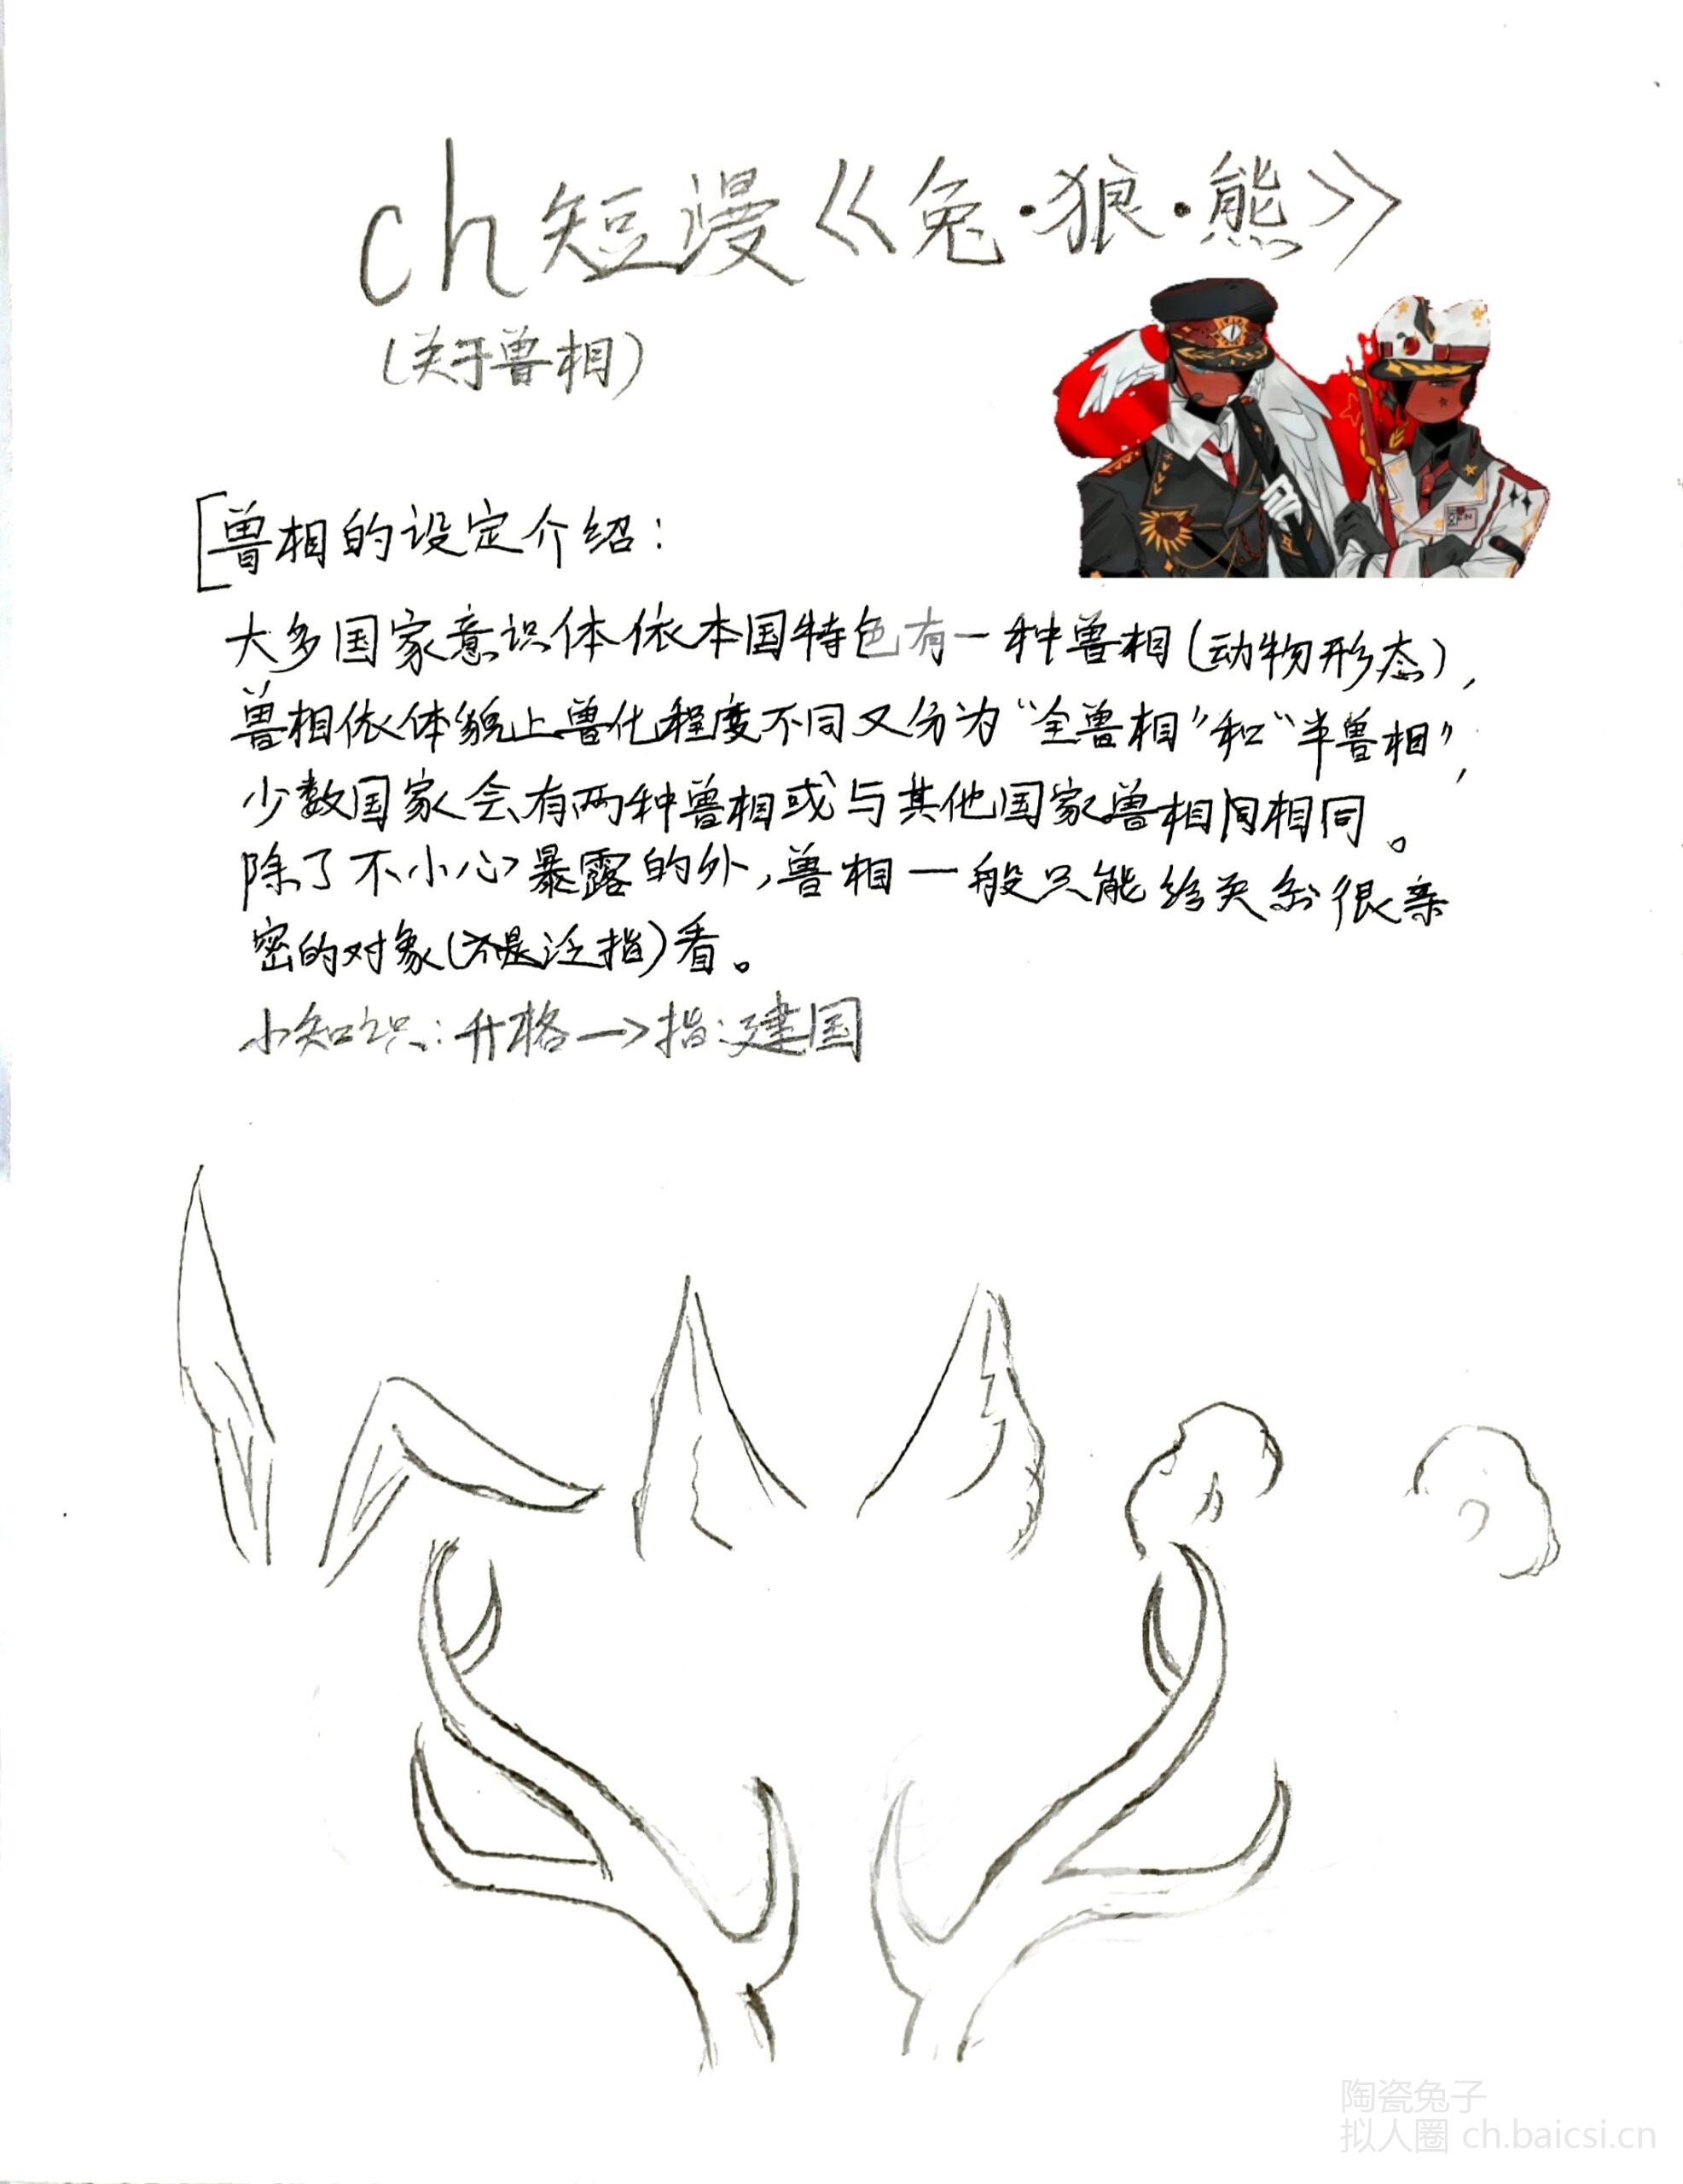 ch短漫《兔·狼·熊》
(关于兽相)
[兽相的设定介绍：
大多国家意识体依本国特色有一种兽相(动物形态),
兽相依体貌上兽化程度不同又分为“全兽相”和“半兽相”,
少数国家会有两种兽相或与其他国家兽相间相同。
除了不小心暴露的外,兽相一般只能给关系很亲
密的对象(不是泛指)看。
小知识:升格→指:建国
陶瓷兔子
拟人圈 ch.baicsi.cn